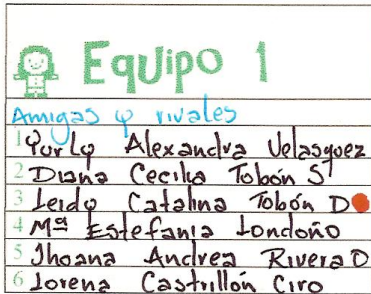 Equipo 1
Amigas y rivales
1 Yurly Alexandra Velasquez
2 Diana Cecilia Tobón S
3 Leidy Catalina Tobón D
4 Mª Estefania Londoño
5 Jhoana Andrea Rivera D
6 Lorena Castrillón Ciro